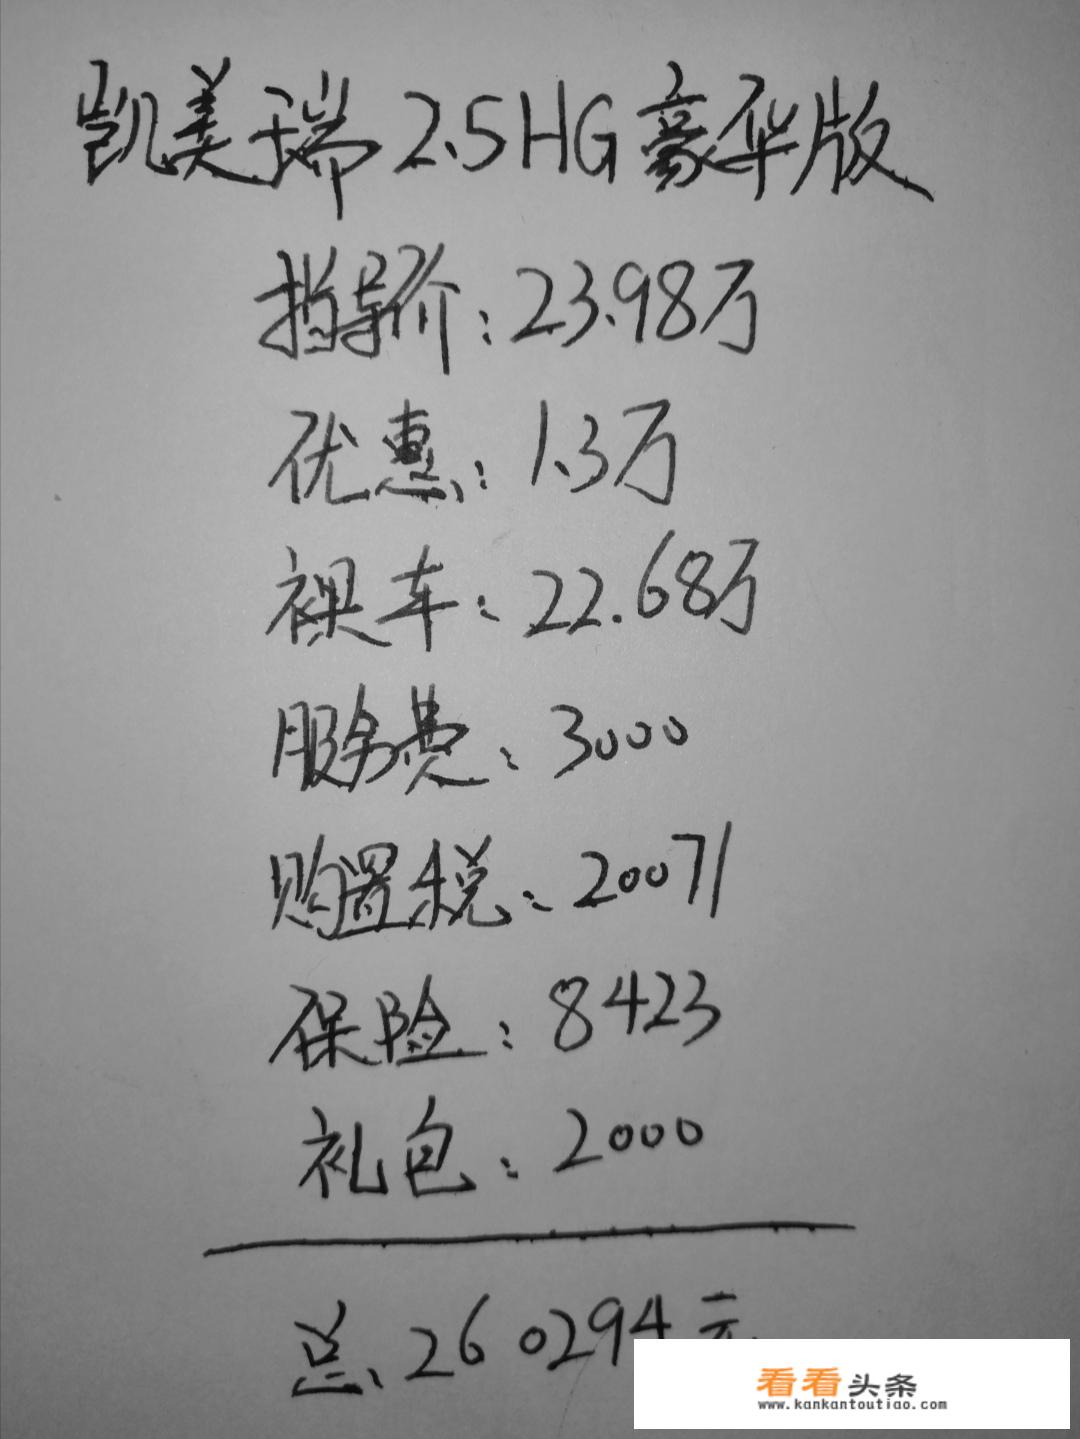 凯美瑞2.5HG豪华版
指导价:23.98万
优惠:1.3万
裸车:22.68万
服务费:3000
购置税:20071
保险:8423
礼包:2000
总:260294元
看看头条
www.kankantoutiao.com